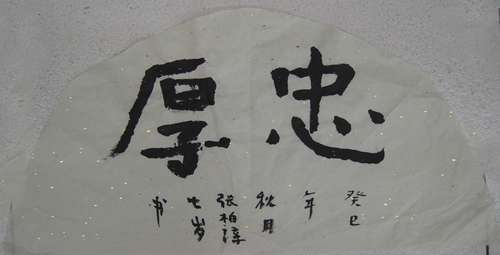 忠厚
癸巳
年
秋月
张柏淳
七岁
书